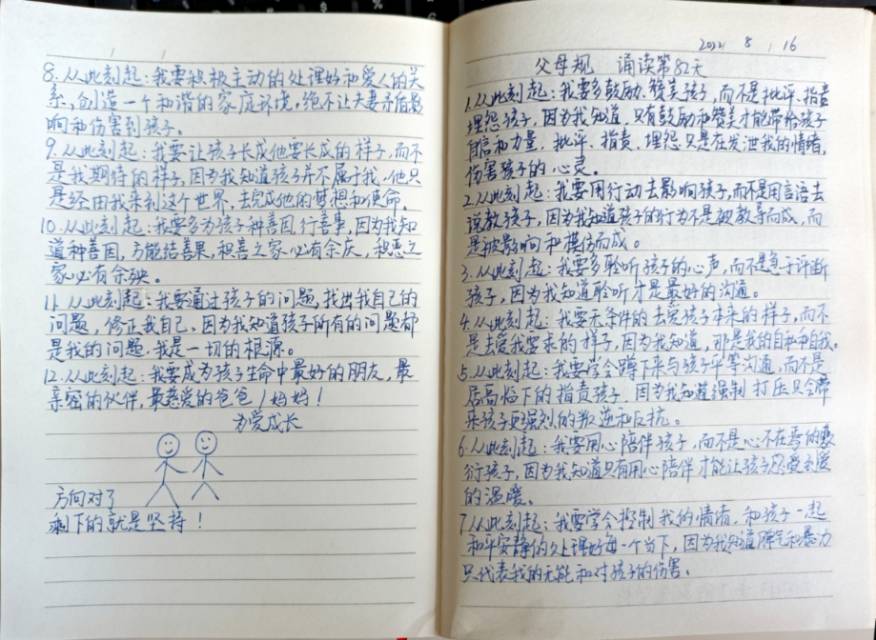 2022 8 , 16
父母规 诵读第82天
1.从此刻起:我要多鼓励、赞美孩子,而不是批评、指责
埋怨孩子,因为我知道,只有鼓励和赞美才能带给孩子
自信和力量,批评、指责、埋怨只是在发泄我的情绪,
伤害孩子的心灵。
2.从此刻起:我要用行动去影响孩子,而不是用言语去
说教孩子,因为我知道孩子的行为不是被教导而成,而
是被影响和模仿而成。
3.从此刻起:我要多聆听孩子的心声,而不是急于评断
孩子,因为我知道聆听才是最好的沟通。
4.从此刻起:我要无条件的去爱孩子本来的样子,而不
是去爱我要求的样子,因为我知道,那是我的自私和自我。
5.从此刻起:我要学会蹲下来与孩子平等沟通,而不是
居高临下的指责孩子,因为我知道强制打压只会带
来孩子更强烈的叛逆和反抗。
6.从此刻起:我要用心陪伴孩子,而不是心不在焉的敷
衍孩子,因为我知道只有用心陪伴才能让孩子感受到爱
的温暖。
7.从此刻起:我要学会控制我的情绪,和孩子一起
和平安静的处理好每一个当下,因为我知道脾气和暴力
只代表我的无能和对孩子的伤害。
8.从此刻起:我要积极主动的处理好和爱人的关
系,创造一个和谐的家庭环境,绝不让夫妻矛盾影
响和伤害到孩子。
9.从此刻起:我要让孩子长成他要长成的样子,而不
是我期待的样子,因为我知道孩子并不属于我,他只
是经由我来到这个世界,去完成他的梦想和使命。
10.从此刻起:我要多为孩子种善因,行善事,因为我知
道种善因,方能结善果,积善之家必有余庆,积恶之
家必有余殃。
11.从此刻起:我要通过孩子的问题,找出我自己的
问题,修正我自己,因为我知道孩子所有的问题都
是我的问题.我是一切的根源。
12.从此刻起:我要成为孩子生命中最好的朋友,最
亲密的伙伴,最慈爱的爸爸/妈妈!
为爱成长
方向对了
剩下的就是坚持!